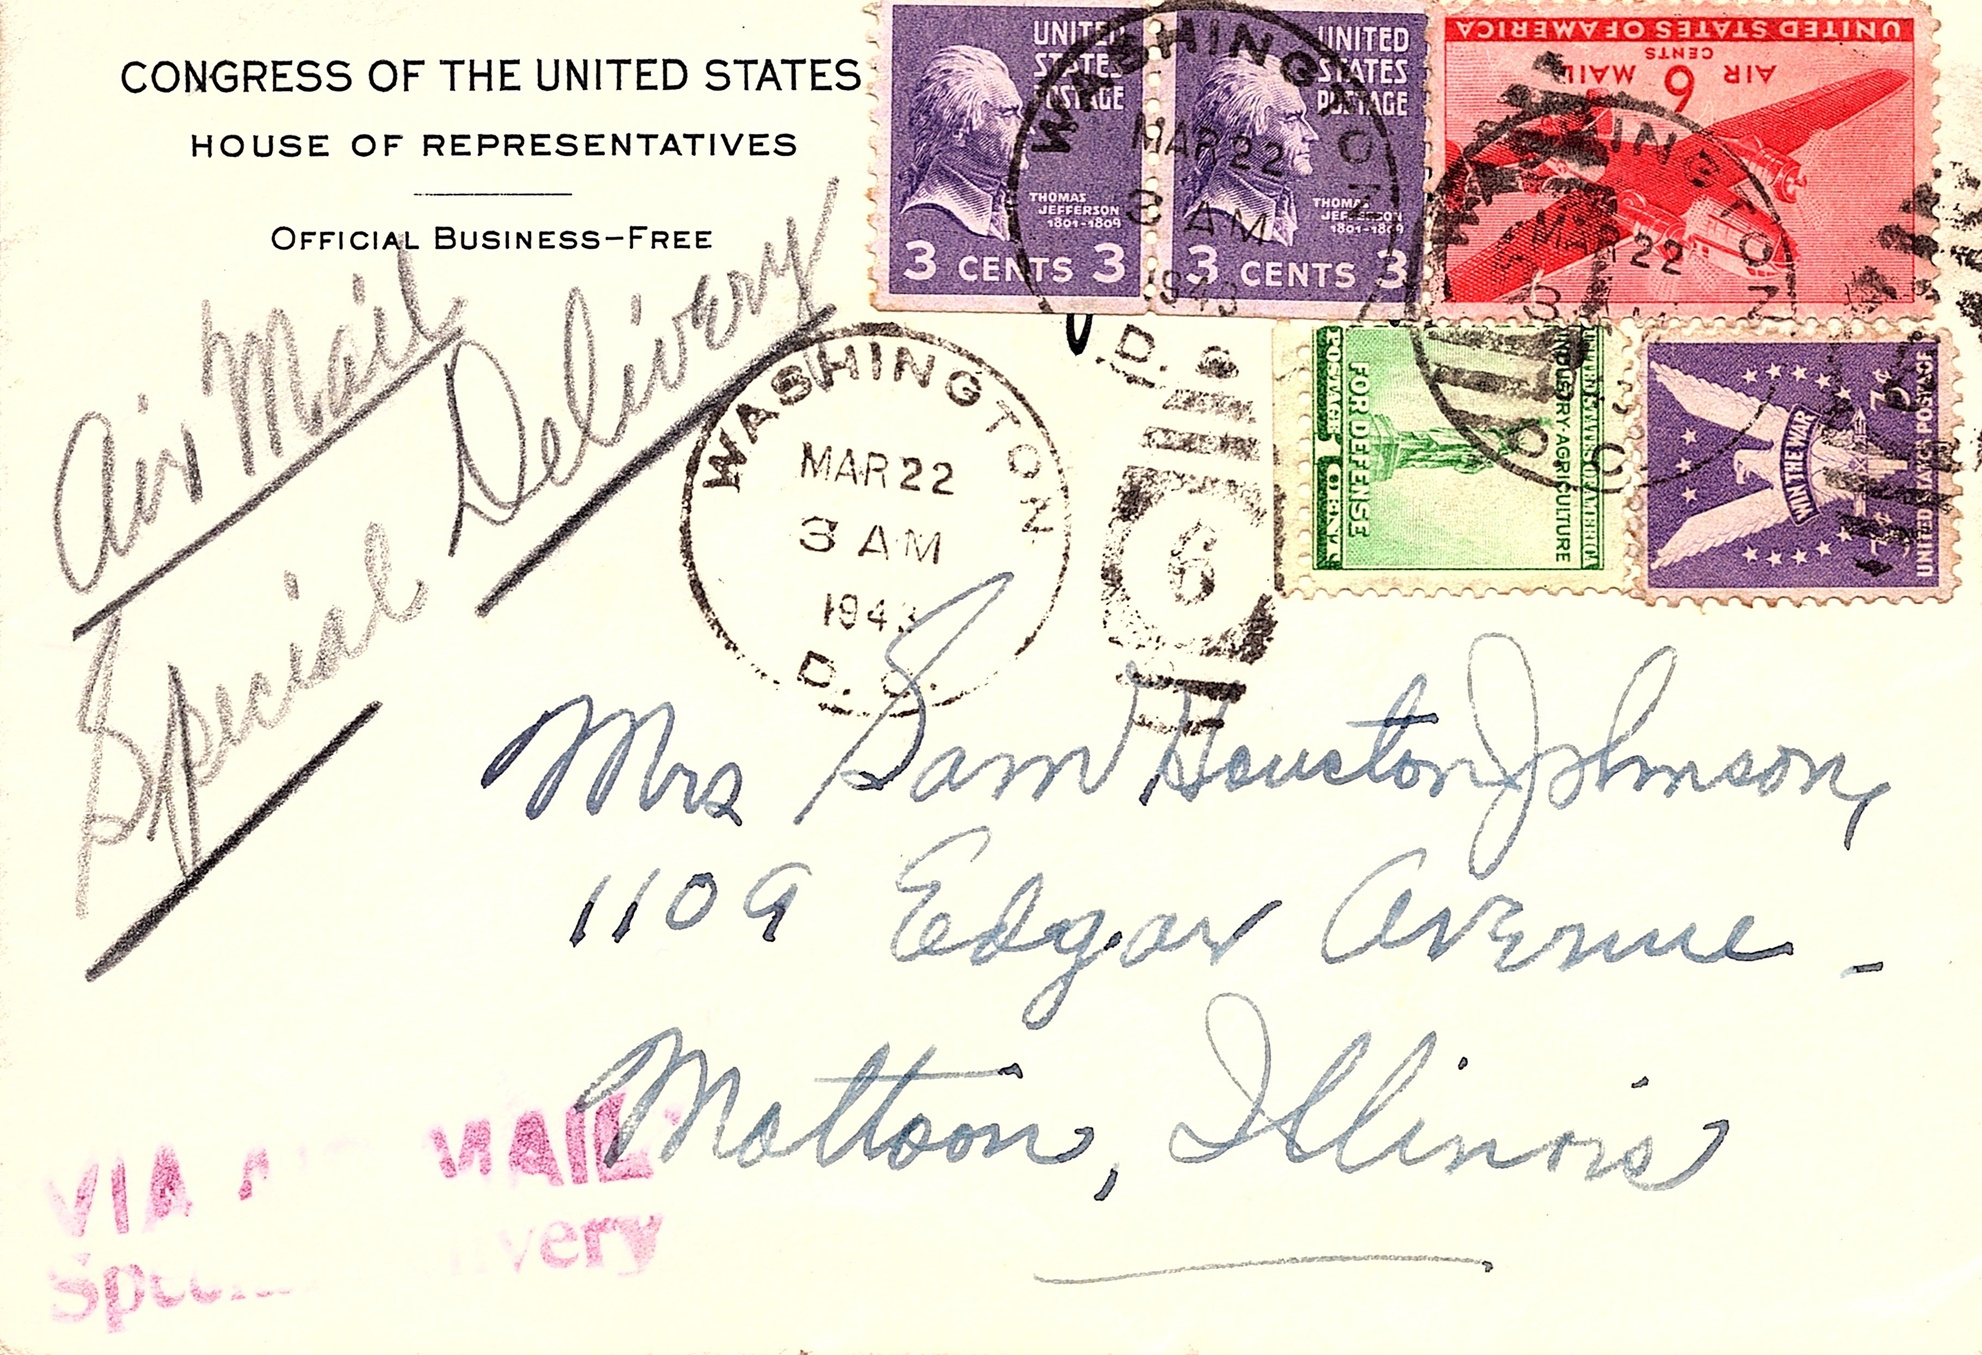 CONGRESS OF THE UNITED STATES
HOUSE OF REPRESENTATIVES
OFFICIAL BUSINESS—FREE
Air Mail
Special Delivery
UNITED
STATES
POSTAGE
THOMAS
JEFFERSON
1801-1809
3 CENTS 3
UNITED
STATES
POSTAGE
THOMAS
JEFFERSON
1801-1809
3 CENTS 3
UNITED STATES OF AMERICA
6 CENTS
AIR MAIL
WASHINGTON
MAR 22
3 AM
1943
D. C.
WASHINGTON
MAR 22
3
D. C.
UNITED STATES OF AMERICA
INDUSTRY·AGRICULTURE
FOR DEFENSE
POSTAGE 1 CENT
WIN THE WAR
3¢ 3¢
UNITED STATES POSTAGE
WASHINGTON
MAR 22
3 AM
1943
D. C.
6
Mrs Sam Houston Johnson,
1109 Edgar Avenue -
Mattoon, Illinois
VIA MAIL